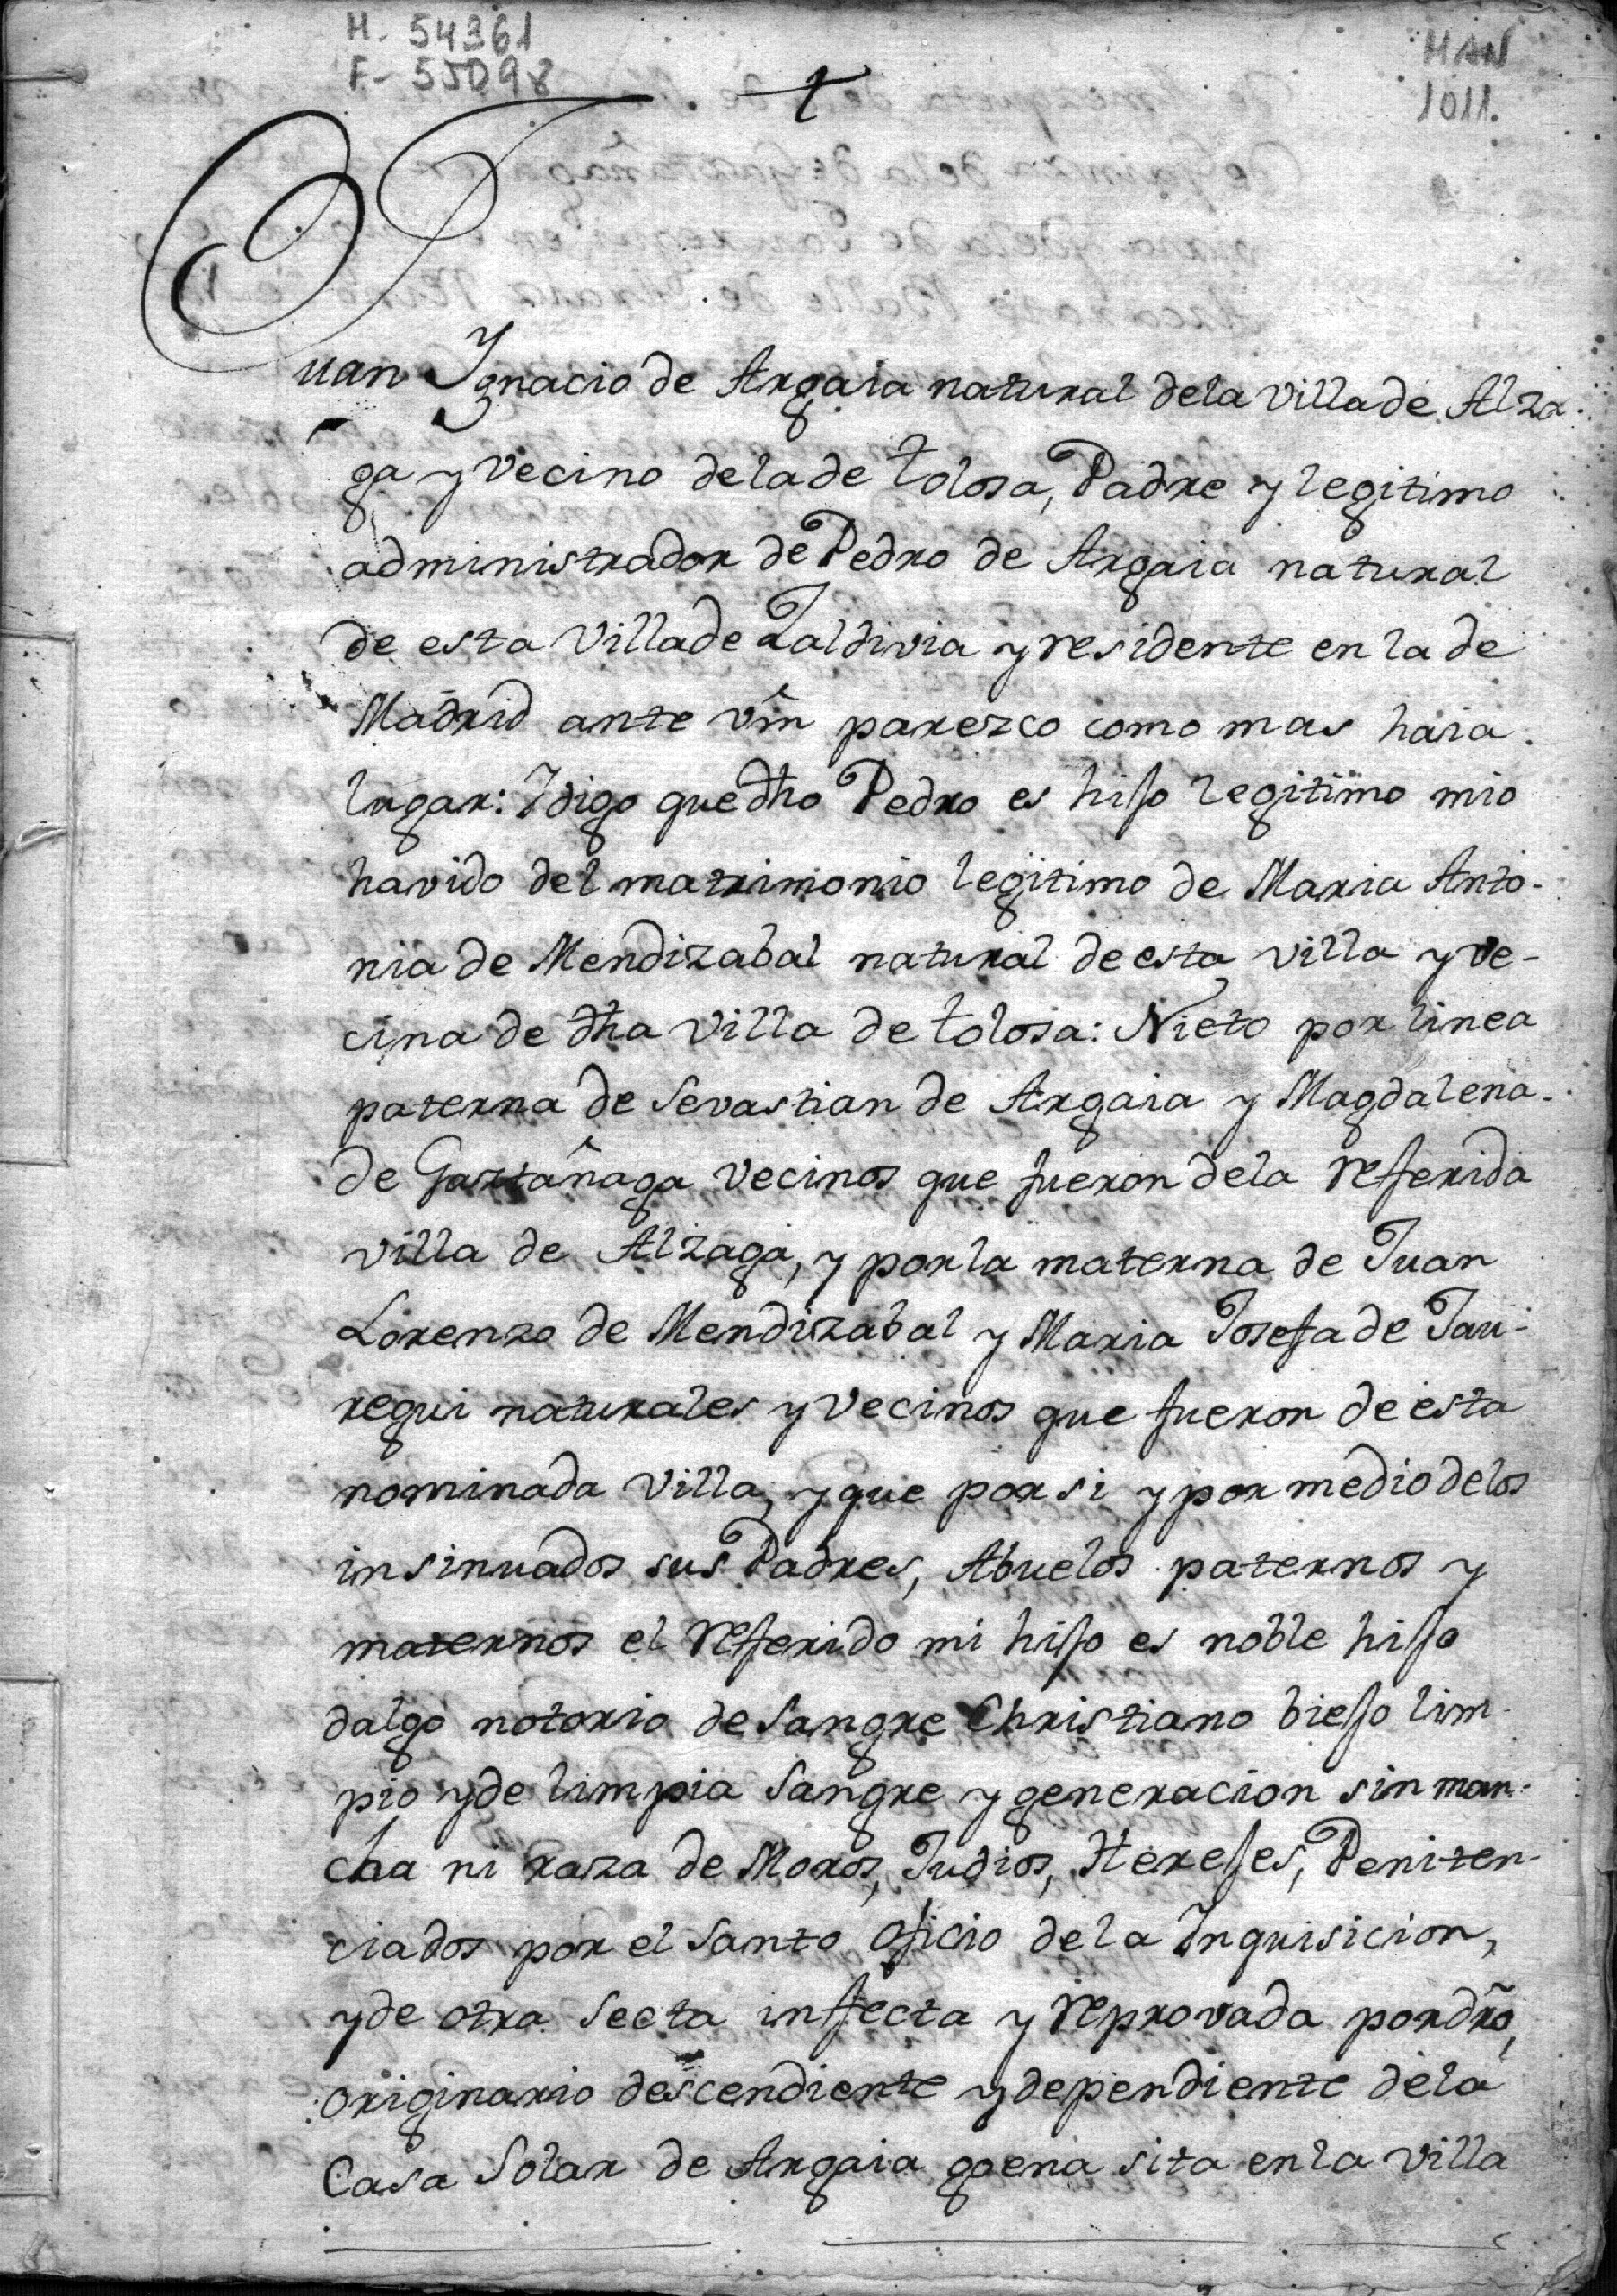 H. 54361
F- 55098
HAN
1011.
Juan Ignacio de Argaia natural dela villa de Alza
ga y Vecino dela de tolosa, Padre y legitimo
administrador de Pedro de Argaia natural
de esta Villa de Zaldivia y residente en la de
Madrid ante vm̂ parezco como mas haia
lugar: Y digo que dho Pedro es hijso legitimo mio
havido del matrimonio legitimo de Maria Anto-
nia de Mendizabal natural de esta villa y ve-
cina de dha villa de tolosa: Nieto por linea
paterna de Sevastian de Argaia y Magdalena
de Gaztañaga Vecinos que fueron dela referida
villa de Alzaga, y por la materna de Juan
Lorenzo de Mendizabal y Maria Josefa de Jau-
regui naturales y Vecinos que fueron de esta
nominada Villa, y que por si y por medio delos
insinuados sus Padres, Abuelos paternos y
maternos el referido mi hijso es noble hijso
dalgo notorio de sangre Christiano biejso lim-
pio y de limpia sangre y generacion sin man-
cha ni raza de Moros, Judios, Herejses, Peniten-
ciados por el Santo oficio de la Inquisicion,
y de otra secta infecta y reprovada por dr̃o,
originario descendiente y dependiente dela
Casa Solar de Argaia goena sita en la villa